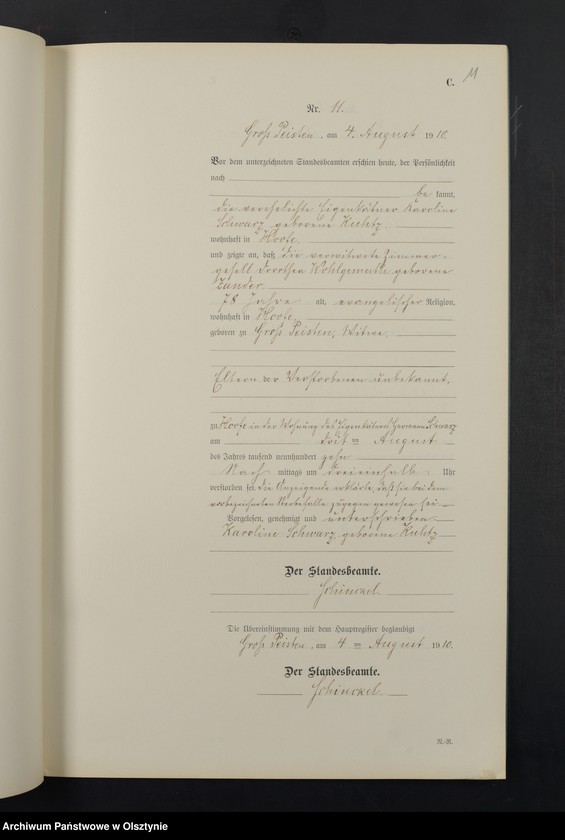 C.
11
Nr. 11.
Groß Peisten, am 4. August 1910.
Vor dem unterzeichneten Standesbeamten erschien heute, der Persönlichkeit
nach
be kannt,
die verehelichte Eigenkätner Karoline
Schwarz geborene Kuhtz
wohnhaft in Hoofe,
und zeigte an, daß die verwitwete Zimmer-
gesell Dorothea Wohlgemuth geborene
Zander
78 Jahre alt, evangelischer Religion,
wohnhaft in Hoofe,
geboren zu Groß Peisten, Witwe,
Eltern der Verstorbenen unbekannt,
zu Hoofe in der Wohnung des Eigenkätners Hermann Schwarz
am ten August
des Jahres tausend neunhundert zehn
Nach mittags um Uhr
verstorben sei. Die Anzeigende erklärte, daß sie bei dem
vorbezeichneten Sterbefalle zugegen gewesen sei
Vorgelesen, genehmigt und unterschrieben
Karoline Schwarz geborene Kuhtz
Der Standesbeamte.
Schinckel
Die Übereinstimmung mit dem Hauptregister beglaubigt
Groß Peisten, am 4 ten August 1910.
Der Standesbeamte.
Schinckel
N.-R.
Archiwum Państwowe w Olsztynie